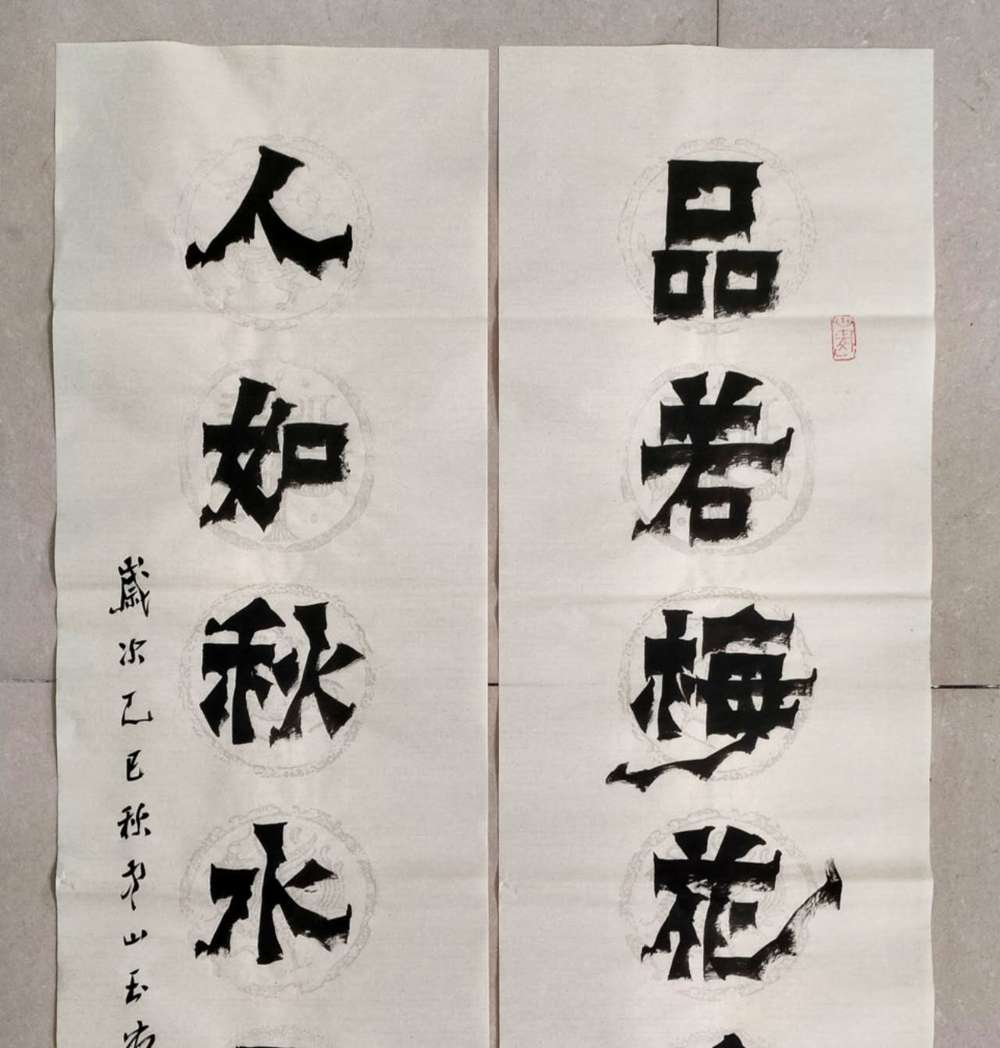 品若梅花
人如秋水
歲次巳秋山玉